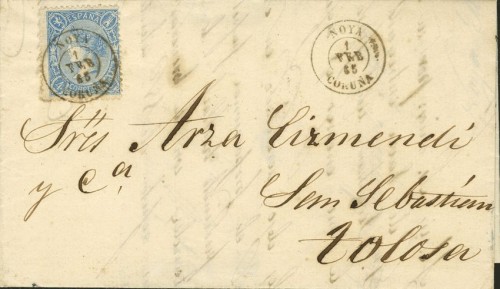 ESPAÑA
NOYA
1
FEB
65
CORUÑA
NOYA
1
FEB
65
CORUÑA
Sres Arza Eizmendi
y Ca
San Sebastian
Tolosa